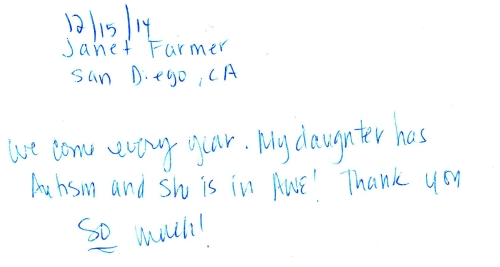 12/15/14
Janet Farmer
San Diego, CA
We come every year. My daughter has
Autism and she is in AWE! Thank you
So much!